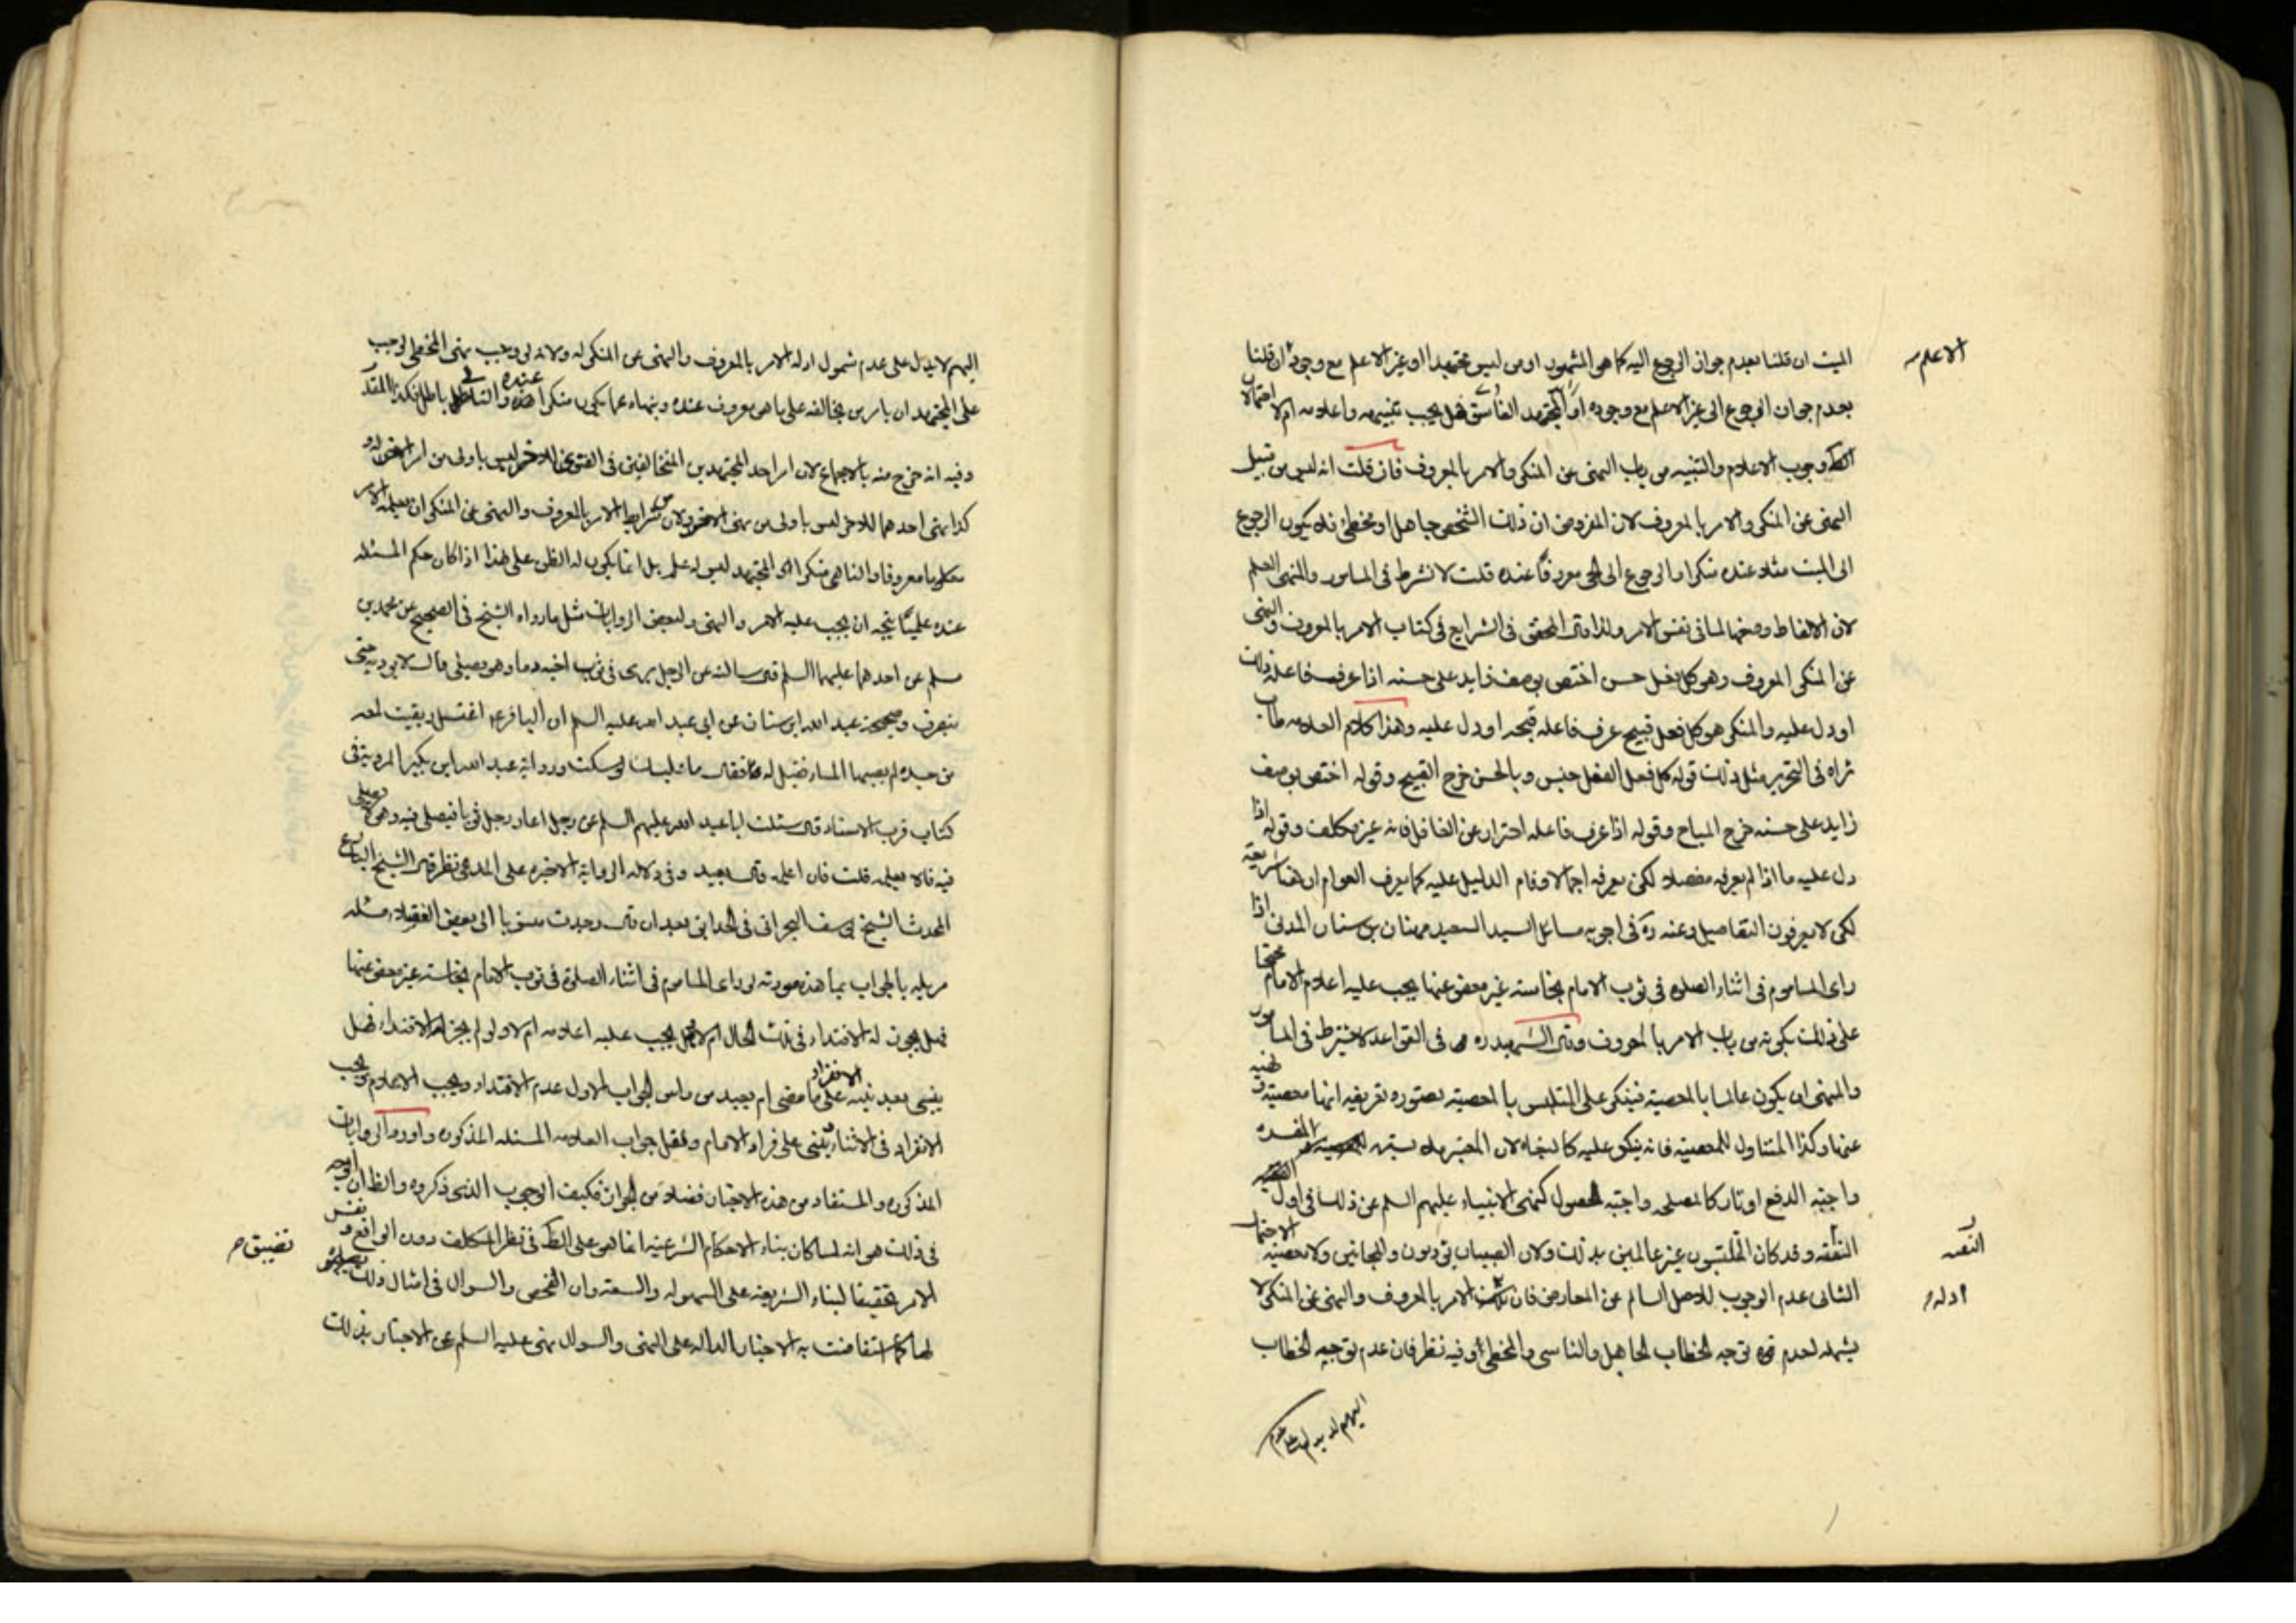 الميت ان قلنا بعدم جواز الرجوع اليه كما هو المشهور او من ليس مجتهدا او غير الاعلم مع وجوده ان قلنا
الاعلم
بعدم جواز الرجوع الى غير الاعلم مع وجوده او المجتهد الفاسق فهل يجب تنبيهه واعلامه ام لا احتمالان
وجوب الاعلام والتنبيه من باب النهى عن المنكر والامر بالمعروف فان قلت انه ليس من قبيل
النهى عن المنكر والامر بالمعروف لان المفروض ان ذلك الشخص جاهل او مخطئ فلا يكون الرجوع
الى الميت مثلا عنده منكرا والرجوع الى الحى معروفا عنده قلت لا نشرط فى المامور والمنهى العلم
لان الالفاظ وضعها لما فى نفس الامر ولذا قال المحقق فى الشرايع فى كتاب الامر بالمعروف والنهى
عن المنكر المعروف وهو كل فعل حسن اختص بوصف زايد على حسنه اذا عرف فاعله ذلك
او دل عليه والمنكر هو كل فعل قبيح عرف فاعله قبحه او دل عليه وهذا كلام العلامه طاب
ثراه فى التحرير مثل ذلك قوله كل فعل الفعل جنس وبالحسن خرج القبيح وقوله اختص بوصف
زايد على حسنه خرج المباح وقوله اذا عرف فاعله احتراز عن الغافل فانه غير مكلف وقوله اذا
دل عليه ما اذا لم يعرفه مفصلا لكن يعرفه اجمالا وقام الدليل عليه كما يعرف العوام ان لهنا شريعة
لكن لا يعرفون التفاصيل وعنه ره فى اجوبه مسائل السيد السعيد مهنان بن سنان المدنى اذا
راى الماموم فى اثناء الصلوه فى ثوب الامام نجاسته غير معفو عنها يجب عليه اعلام الامام محتجا
على ذلك بكونه من باب الامر بالمعروف وقال الشهيد ره فى القواعد لا يشترط فى المامور
والمنهى ان يكون عالما بالمعصية فينكر على المتلبس بالمعصية بصوره تعريفه انها معصية ونهيه
عنها وكذا المتناول للمعصية فانه ينكر عليه كالبغاه لان المعتبر ملابسته المفسده
واجبة الدفع او تارك المصلحه واجبة الحصول كنهى الانبياء عليهم السلم عن ذلك فى اول
النقثه وقد كان المتلبسون غير عالمين بذلك ولان الصبيان يؤدبون والمجانين ولا معصية
الثانى عدم الوجوب للاصل السالم عن المعارض فان الامر بالمعروف والنهى عن المنكر لا
ادله
يشمله لعدم توجه الخطاب الجاهل والناسى والمخطئ وفيه نظر فان عدم توجيه الخطاب
اليهم لا يدل على عدم
اليهم لا يدل على عدم شمول ادله الامر بالمعروف والنهى عن المنكر له ولانه لو وجب نهى المخطى لوجب
على المجتهد ان يامر من يخالفه على ما هو معروف عنده وينهاه عما يكون منكرا عنده والتالى باطل فكذا المقدم
وفيه انه خرج منه بالاجماع لان امر احد المجتهدين المتخالفين فى الفتوى للاخر ليس باولى من امر الاخر له و
كذا نهى احدهما للاخر ليس باولى من نهى الاخر ولان من شرايط الامر بالمعروف والنهى عن المنكر ان يعلمه الامر
معروفا والناهى منكرا والمجتهد ليس له علم بل انما يكون له الظن على هذا اذا كان حكم المسئله
عنده علميا يتجه ان يجب عليه الامر والنهى ولبعض الروايات مثل ما رواه الشيخ فى الصحيح عن محمد بن
مسلم عن احدهما عليهما السلم قال سالته عن الرجل يرى فى ثوب اخيه دما وهو يصلى قال لا يؤذنه حتى
ينصرف وصحيحة عبد الله ابن سنان عن ابى عبد الله عليه السلم ان الباقر ع اغتسل وبقيت لمعه
من جسده لم يصبها الماء فقيل له فقال ما عليك لو سكت ورواية عبد الله ابن بكير المروية فى
كتاب قرب الاسناد قال سئلت ابا عبد الله عليهم السلم عن رجل اعار رجل ثوبا فيصلى فيه وهو لا يصلى
فيه قال لا يعلمه قلت فان اعلمه قال يعيد وفى دلاله الرواية الاخيره على المدعى نظر قال الشيخ البارع
المحدث الشيخ يوسف البحرانى فى الحدائق بعد ان قال وجدت منسوبا الى بعض الفقهاء مسئله
مزيله بالجواب بما هذه صورته لو راى الماموم فى اثناء الصلوة فى ثوب الامام نجاسته غير معفو عنها
فهل يجوز له الاقتداء فى ذلك الحال ام لا وهل يجب عليه اعلامه ام لا ولو لم يجز له الاقتداء فهل
يبنى بعد نية الانفراد على ما مضى ام يعيد من راس الجواب الاول عدم الاقتداء ويجب الاعلام ويجب
الانفراد فى الاثناء ويبنى على قراءه الامام ونقل جواب العلامه المسئله المذكوره واورد الروايات
المذكوره والمستفاد من هذه الاخبار فضلا عن الجواز فكيف الوجوب الذى ذكروه والظ ان الوجه
فى ذلك هو انه لما كان بناء الاحكام الشرعيه انما هو على الظ فى نظر المكلف دون الواقع ونفس
تضييق
الامر تحقيقا لبناء الشريعه على السهوله والسعه وان الفحص والسوال فى امثال ذلك
لها كما استفاضت به الاخبار الداله على النهى والسوال نهى عليه السلم عن الاخبار بذلك